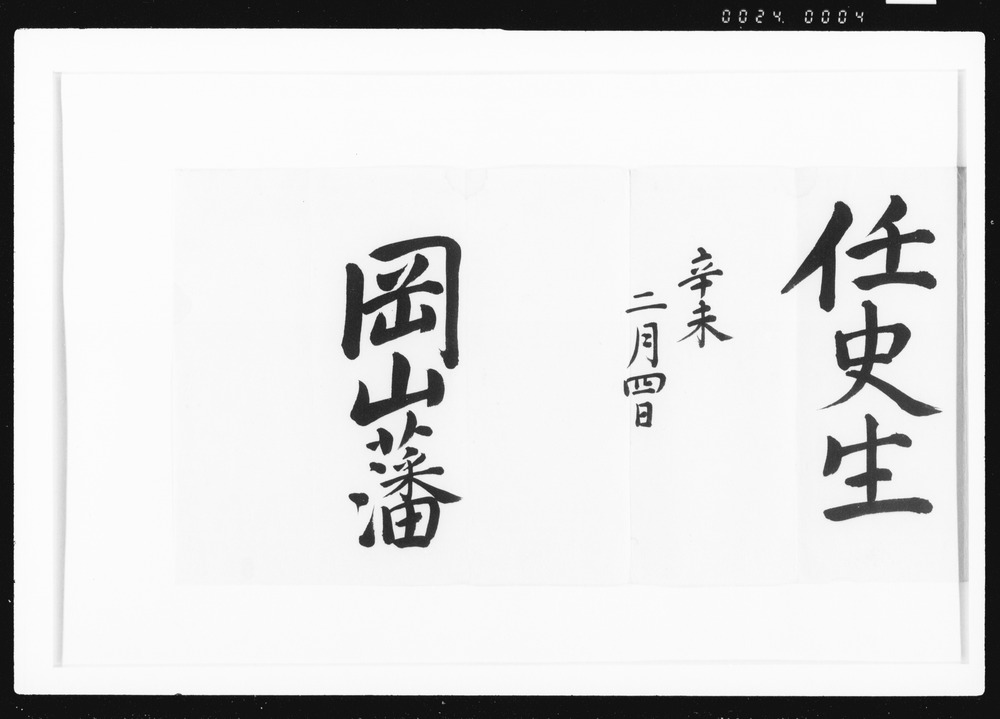 0024 0004
任史生
辛未
二月四日
岡山藩